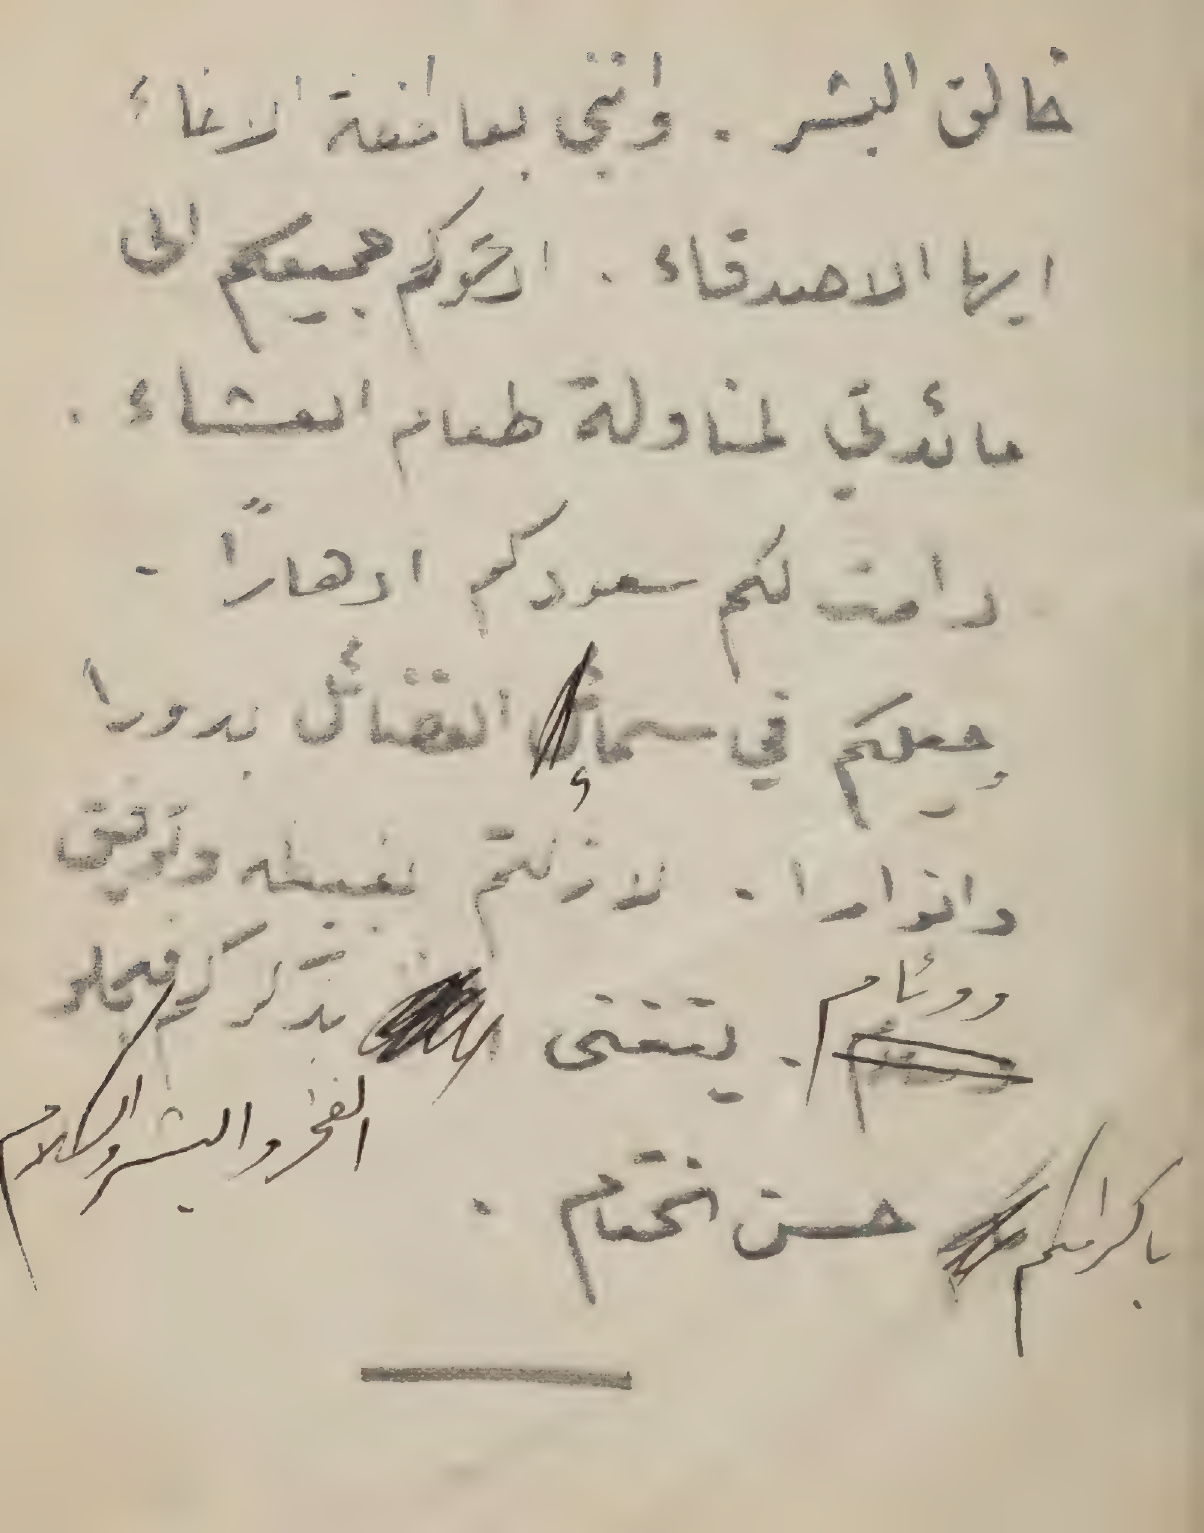 خالق البشر . وانني بعاضفة الاخاء
ايها الاصدقاء . ادعوكم جميعكم الى
مائدتي لمناولة طعام العشاء .
دامت لكم سعودكم ادهارًا -
وجعلكم في سماء الفضائل بدورا
وانوارا - لازلتم بغبطه وتوفيق
ووئام . يتغنى بذكركم
الفخر والبشر والسلام
باكرامكم حسن الختام .